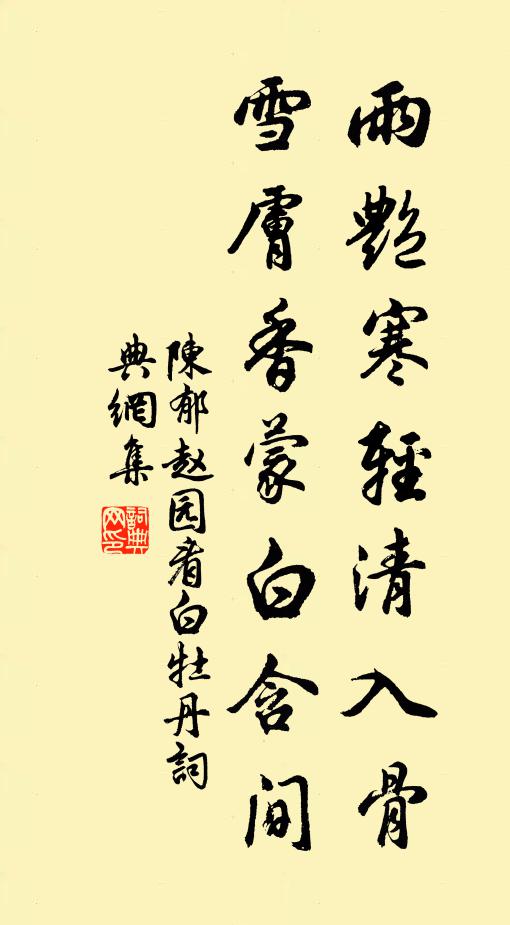 雨艷寒輕清入骨
雪膚香蒙白含间
陳郁赵园看白牡丹詞
典網集
詞典网印